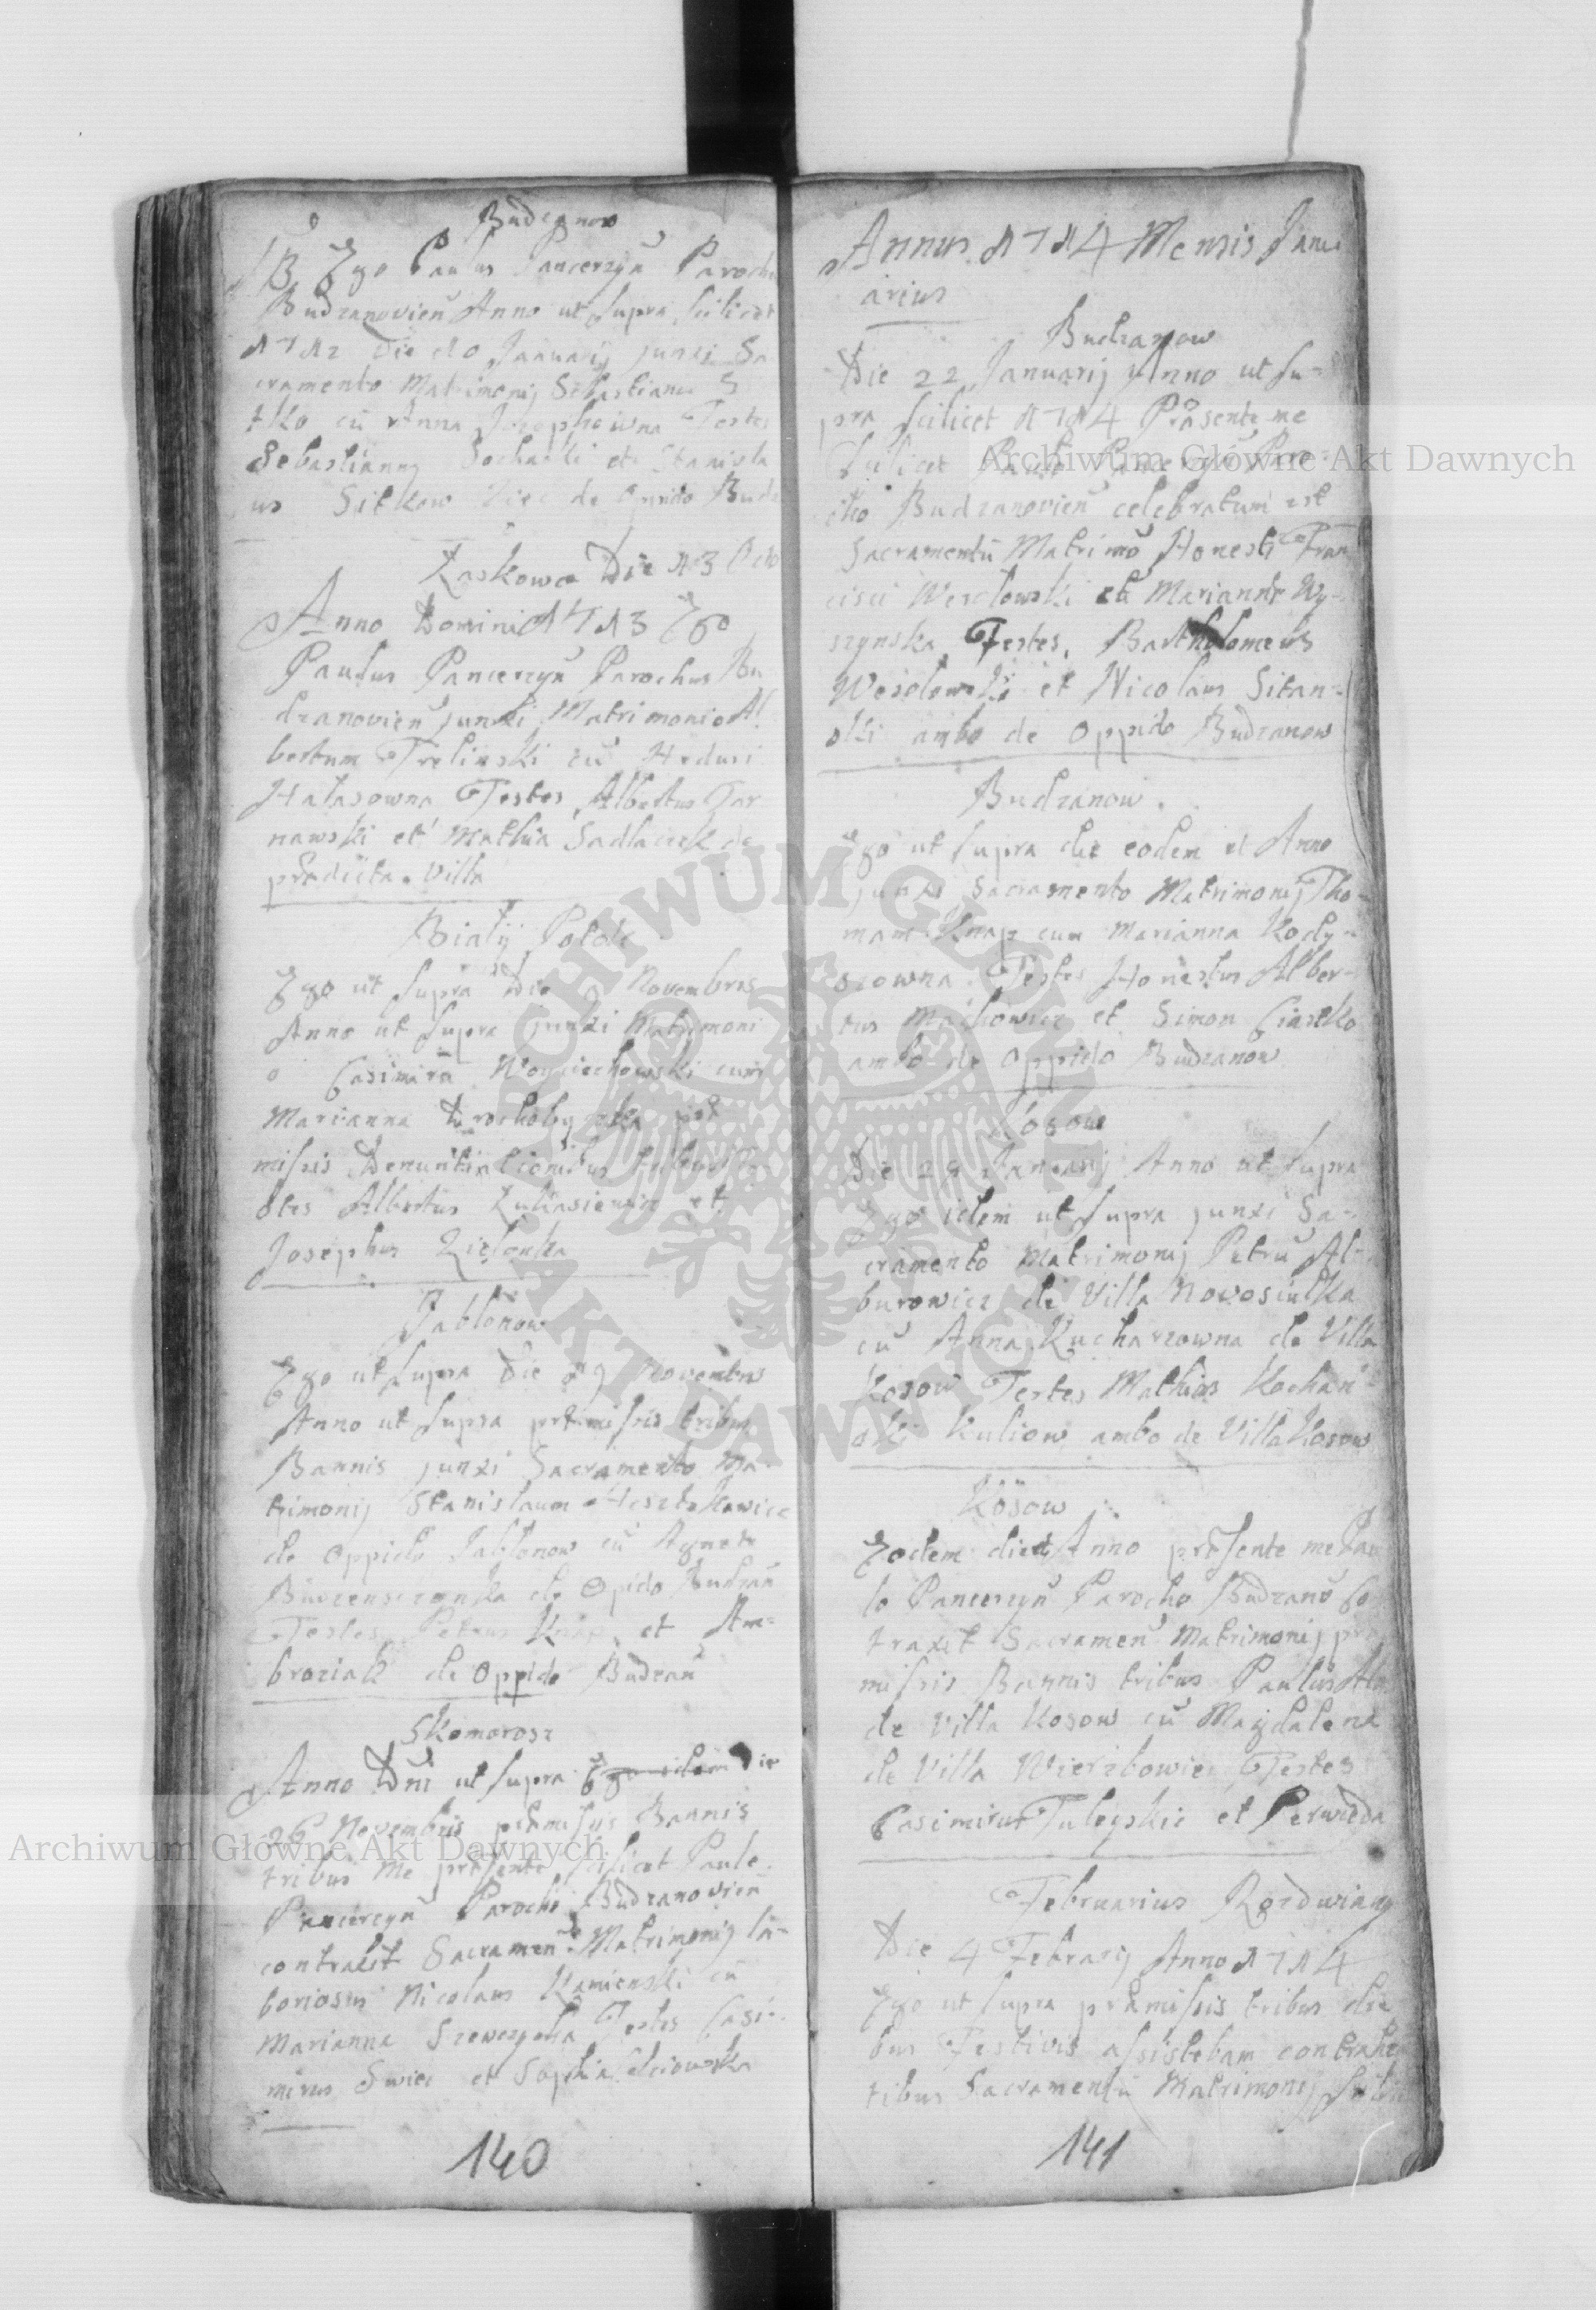 Budzanow
NB Ego Paulus Pancerzyn̄ Parochu
Budzanovien̄ Anno ut supra scilicet
1712 Die 10 Januarij junxi Sa
cramento Matrimonij Sebastianu S
tko cū Anna Jozephowna Testes
Sebastianus Sochacki et Stanisla
us Sitkow de Oppido Budz
Laskowce Die 13 Octo
Anno Domini 1713 Ego
Paulus Pancerzyn̄ Parochus Bu
dzanovien̄ junxi Matrimonio Al
bertum Trelinski cū Hedvi
Halasowna Testes Albertus Tar
nawski et Mathia Sadlaczek de
prædicta Villa
Bialy Potok
Ego ut supra Die 9 Novembris
Anno ut supra junxi Matrimoni
o Casimirū Woyciechowski cum
Marianna Drohobyczka præ
missis Denuntiationibus
stes Albertus Lukasiewicz et
Josephus Zielonka
Jablonow
Ego ut supra Die 19 Novembris
Anno ut supra præmissis tribus
Bannis junxi Sacramento Ma
trimonij Stanislaum
de Oppido Jablonow cū Agnete
de Opido Budzan̄
Testes Petrus Knap et Am-
broziak de Oppido Budzan̄
Skomorosz
Anno Dni ut supra Ego idem Die
26 Novembris præmissis Bannis
tribus Me præsente scilicet Paulo
Pancerzyn̄ Parocho Budzanovien̄
contraxit Sacramen̄ Matrimonij la-
boriosus Nicolaus Kamienski cū
Marianna Szewczycha Testes Casi-
mirus Swiec et Sophia
140
Annus 1714 Mensis Janu
arius
Budzanow
Die 22 Januarij Anno ut su-
pra scilicet 1714 Præsente me
scilicet Paulo Pancerzyn̄ Paro-
cho Budzanovien̄ celebratum est
Sacramentū Matrimo Honesti Fran
cisci Wesolowski et Mariannæ Wy-
szynska Testes, Bartholomeus
Wesolowski et Nicolaus Sitan-
ski ambo de Oppido Budzanow
Budzanow.
Ego ut supra die eodem et Anno
junxi Sacramento Matrimonij Tho-
mam Knap cum Marianna Kody-
sowna Testes Honestus Alber-
tus Machowicz et Simon Ciastko
ambo de Oppido Budzanow
Kosow
Die 29 Januarij Anno ut supra
Ego idem ut supra junxi Sa-
cramento Matrimonij Petrū Al-
burowicz de Villa Novosiulka
cū Anna Kucharzowna de Villa
Kosow Testes Mathias Kochan-
ski Kuliow ambo de Villa Kosow
Kosow
Eodem die et Anno præsente me Pau
lo Pancerzyn̄ Parocho Budzano Co
traxit Sacramen̄ Matrimonij præ
missis Bannis tribus Paulus
de Villa Kosow cū Magdalena
de Villa Wierzbowiec Testes
Casimirus Tuleyskie et Perwieda
Februarius Rozdwiany
Die 4 Februarij Anno 1714
Ego ut supra præmissis tribus die
bus Festivis assistebam contrahen
tibus Sacramentū Matrimonij
141
Archiwum Główne Akt Dawnych
Archiwum Główne Akt Dawnych
ARCHIWUM GŁÓWNE AKT DAWNYCH